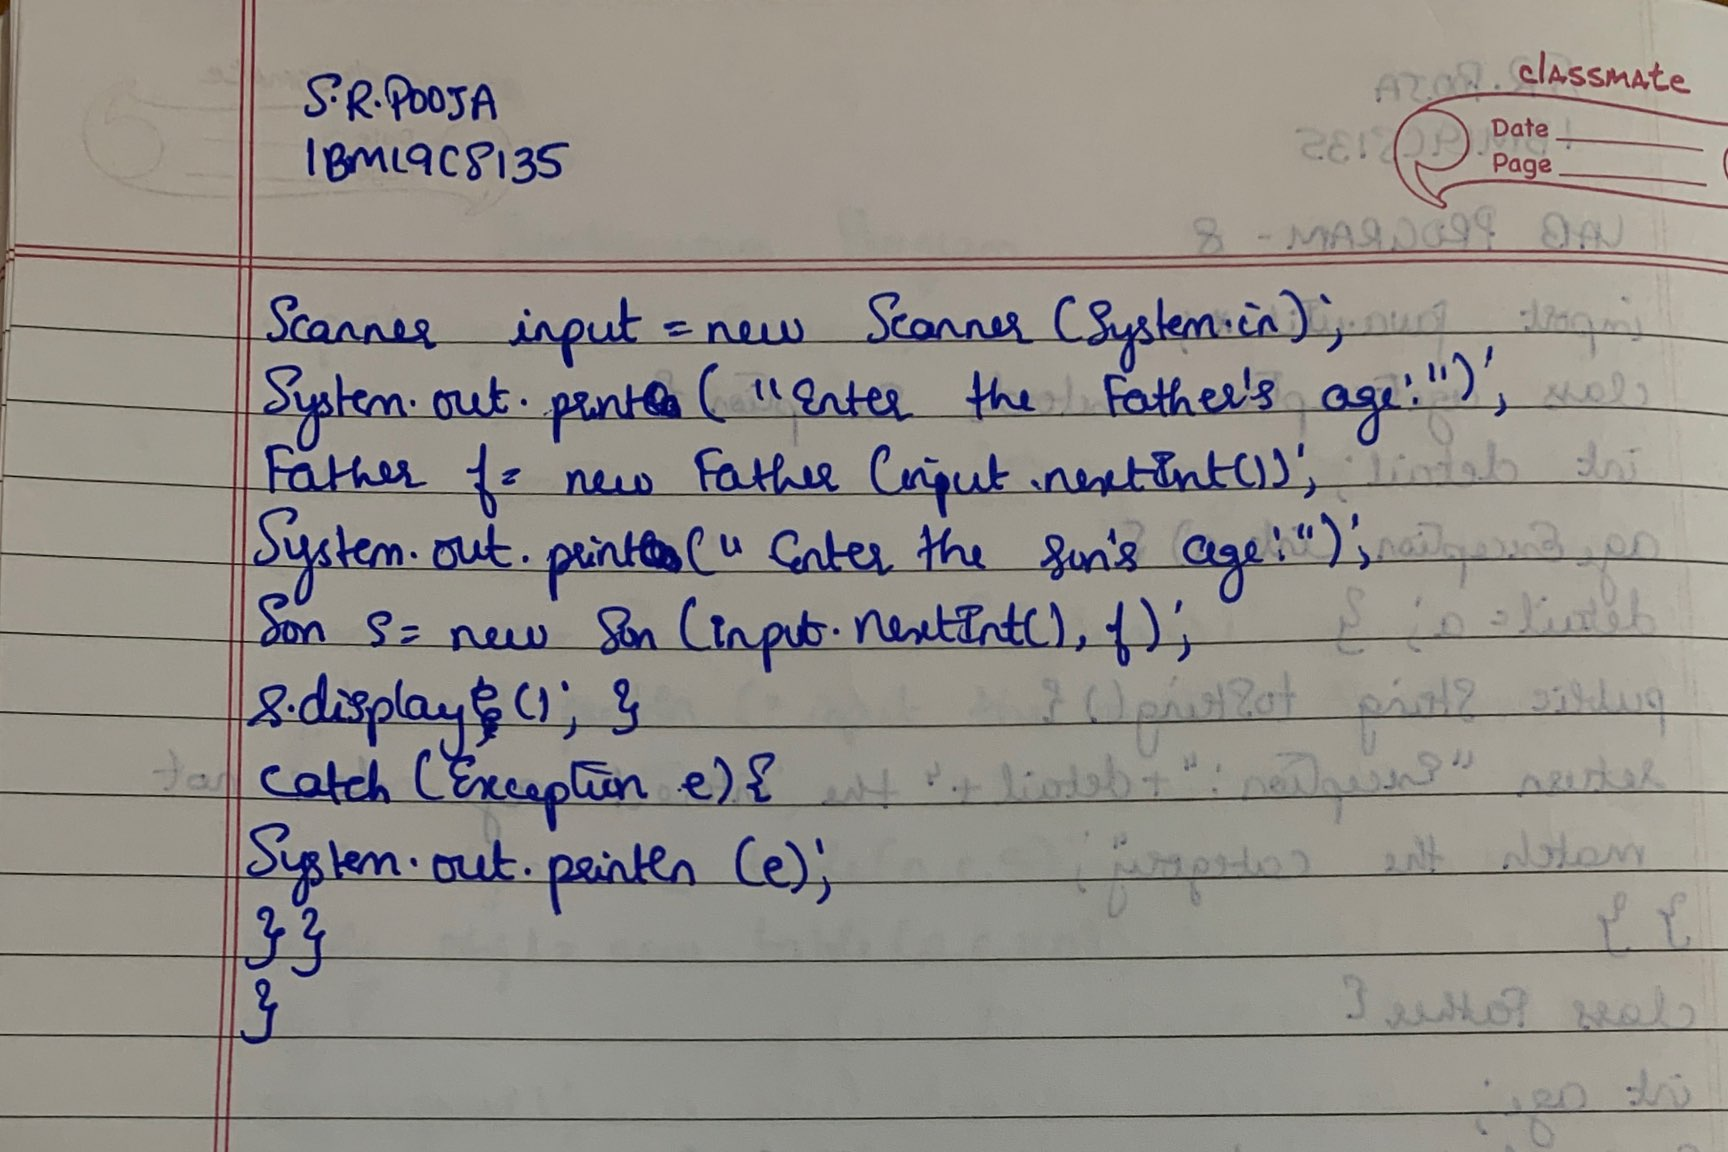 S.R.POOJA
1BM19CS135
classmate
Date
Page
Scanner input = new Scanner (System.in);
System.out.print ("Enter the Father's age:");
Father f = new Father (input.nextInt());
System.out.print ("Enter the Son's age:");
Son s = new Son (input.nextInt(), f);
s.display();  }
catch (Exception e) {
System.out.println (e);
} }
}